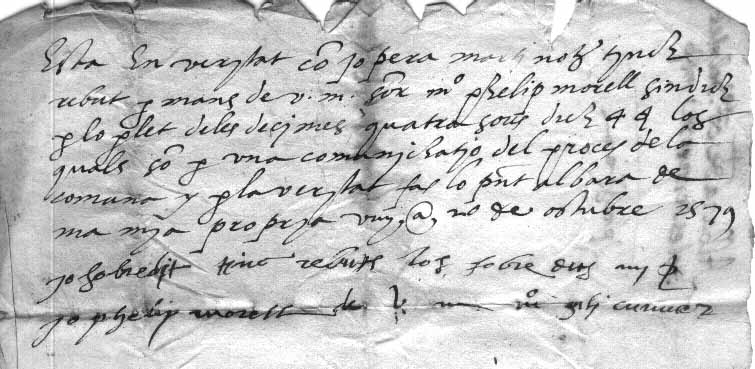 Esta En veritat com jo pera marti not tinch
rebut p mans de v. m. sor mo phelip morell sindich
p lo plet deles decimes quatra sous dich 4 q los
quals son p vna comunichatjo del proces de la
comuna y p la veritat fas lo pnt albara de
ma mja proprja vuy, @, 20 de octubre 1579
jo sobredit tinc rebuts los sobre dits
jo phelip morell